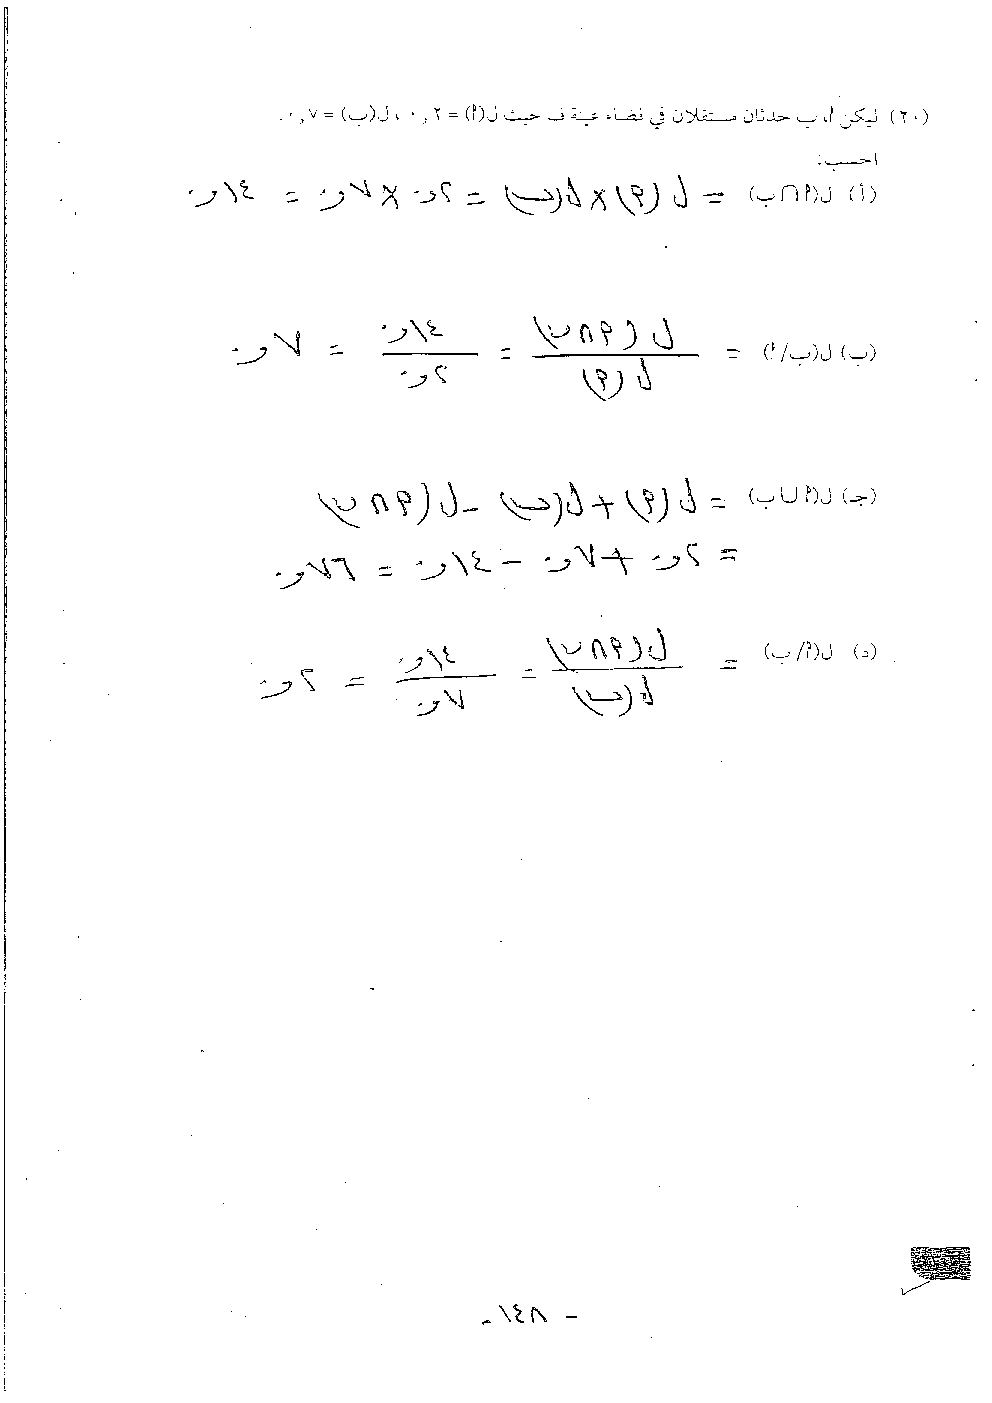 (٢٠) ليكن أ، ب حدثان مستقلان في فضاء عينة ف حيث ل(أ) = ٠,٢ ، ل(ب) = ٠,٧.
احسب:
(أ) ل(أ ∩ ب) = ل(أ) × ل(ب) = ٠,٢ × ٠,٧ = ٠,١٤
(ب) ل(ب/أ) = ل(أ ∩ ب) / ل(أ) = ٠,١٤ / ٠,٢ = ٠,٧
(جـ) ل(أ ∪ ب) = ل(أ) + ل(ب) - ل(أ ∩ ب)
= ٠,٢ + ٠,٧ - ٠,١٤ = ٠,٧٦
(د) ل(أ/ب) = ل(أ ∩ ب) / ل(ب) = ٠,١٤ / ٠,٧ = ٠,٢
- ١٤٨ -